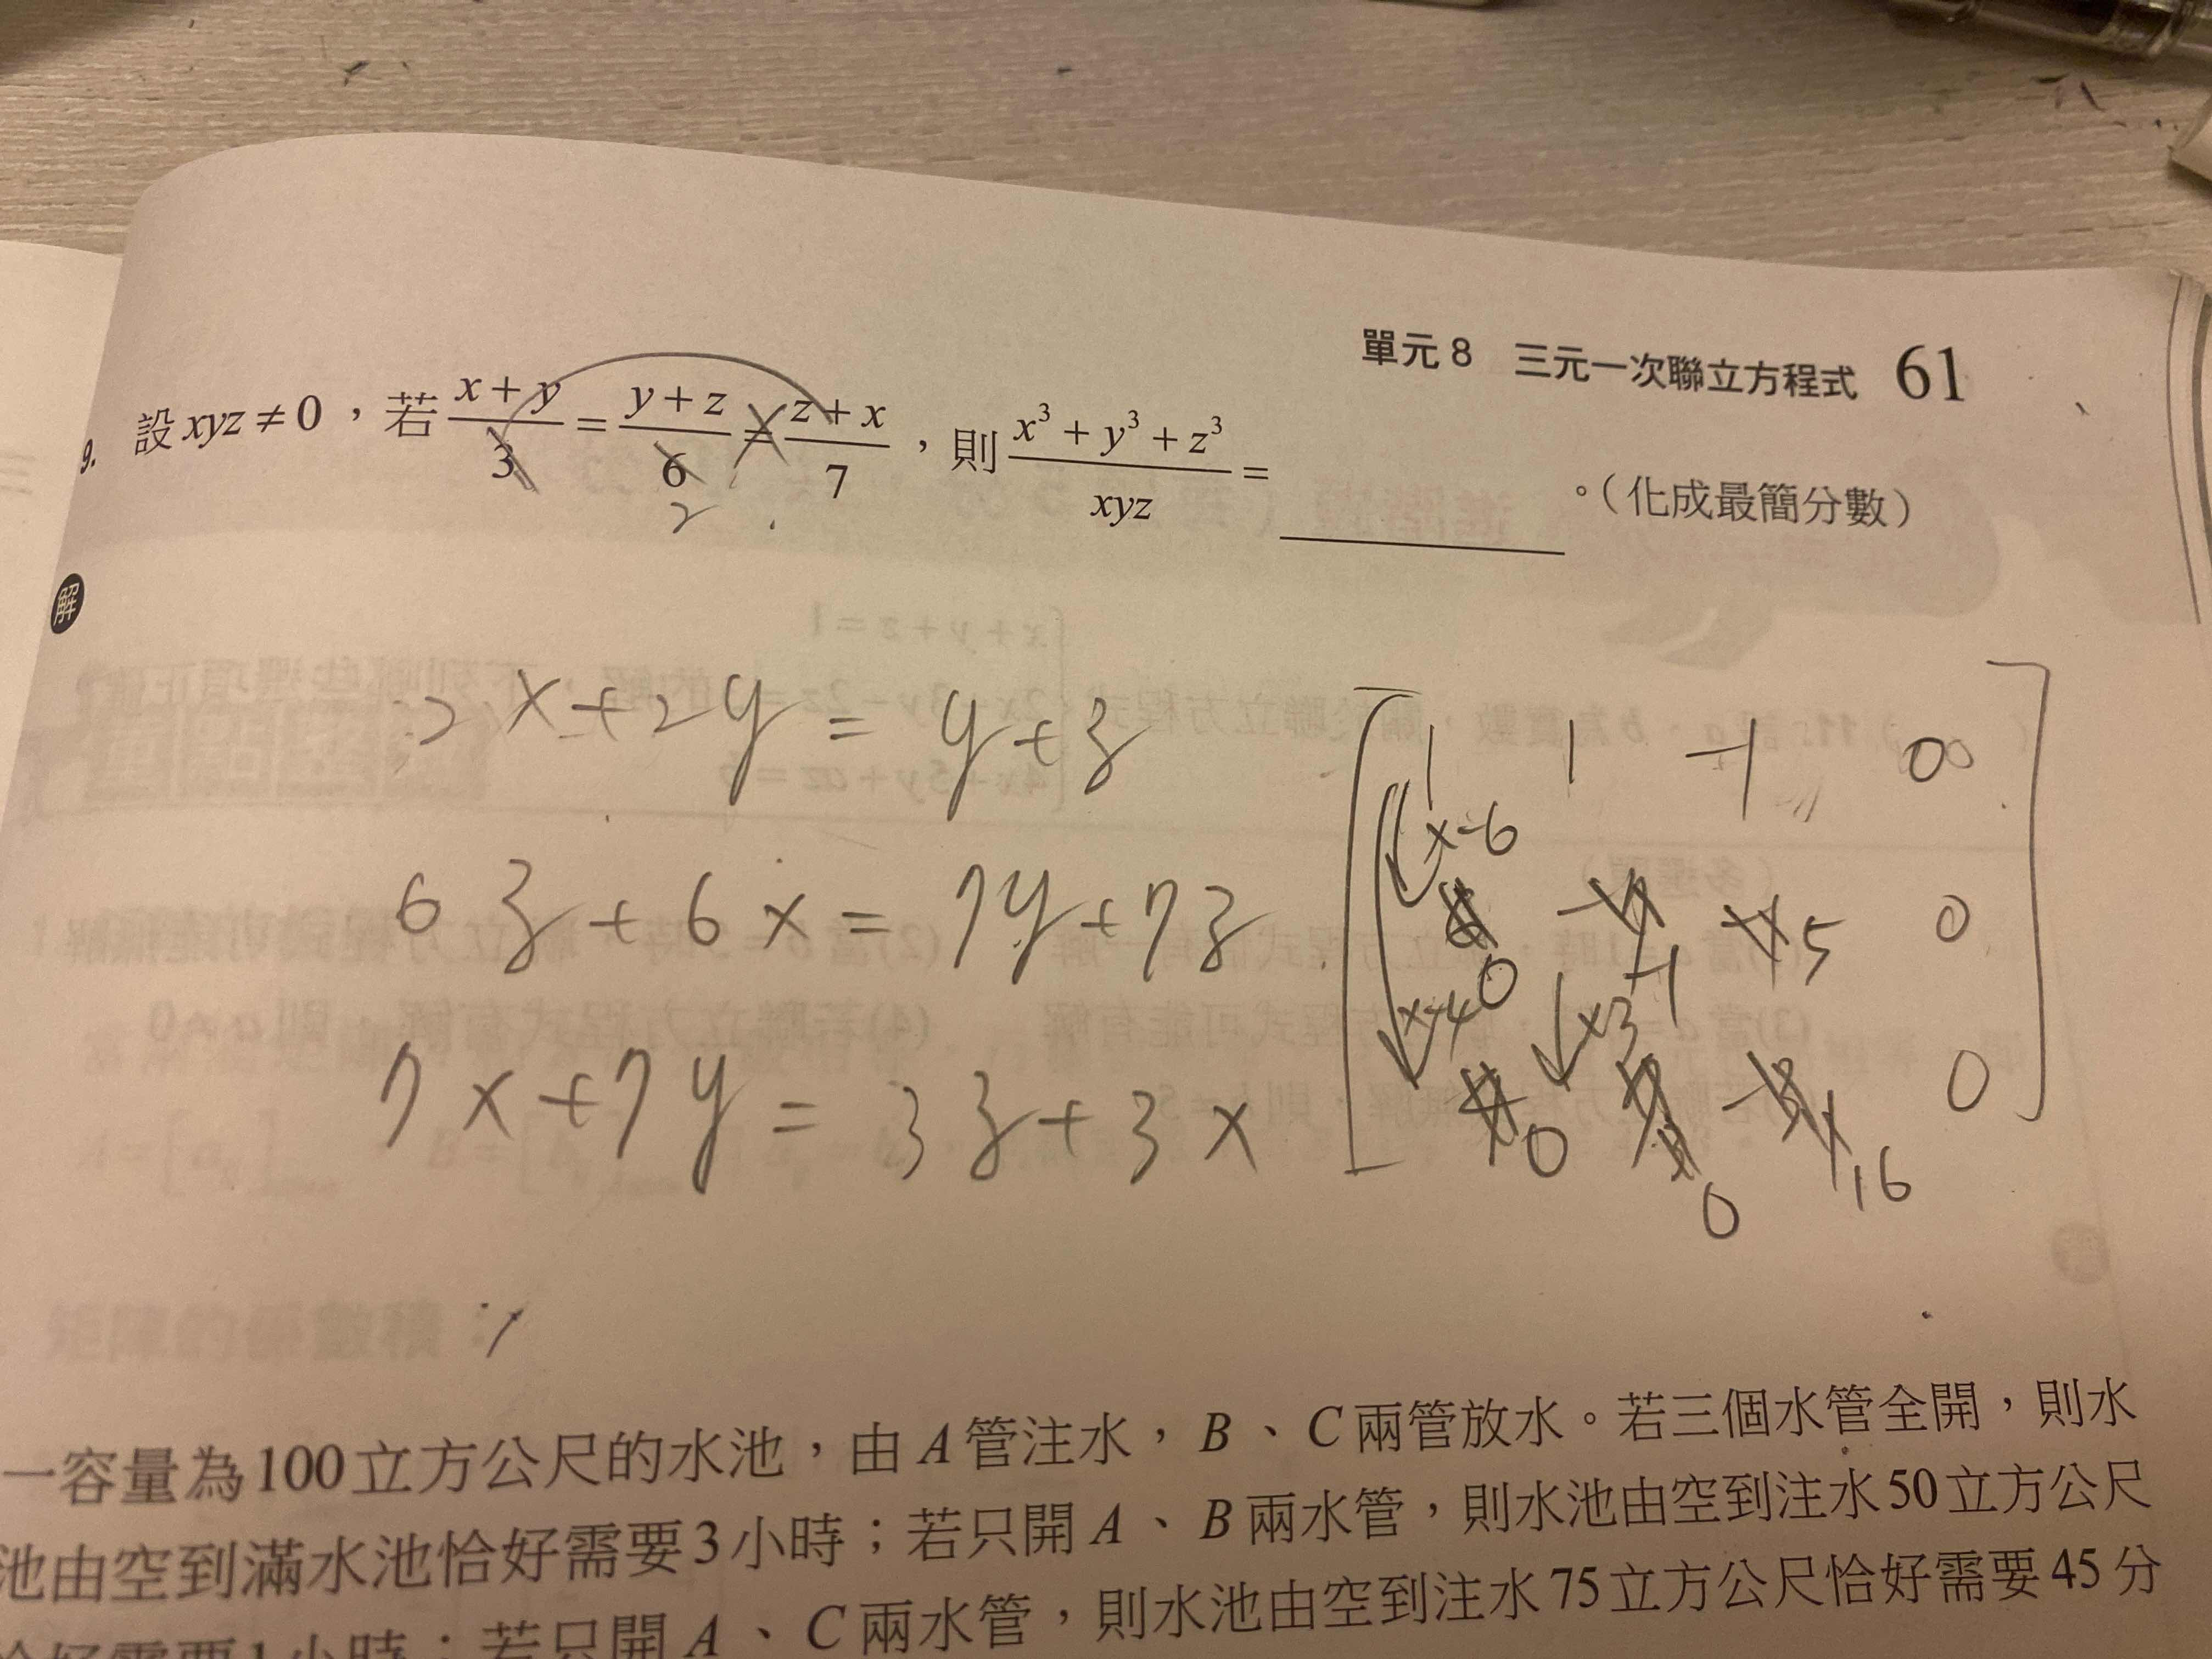 單元8 三元一次聯立方程式 61
9. 設 xyz ≠ 0，若 (x+y)/3 = (y+z)/6 = (z+x)/7，則 (x³+y³+z³)/xyz = ______。（化成最簡分數）
2
解
2x+2y = y+z
6z+6x = 7y+7z
7x+7y = 3z+3x
1 1 -1 0
x-6
5 0
0 -1
x-4 x3
0
0 16
0
一容量為100立方公尺的水池，由A管注水，B、C兩管放水。若三個水管全開，則水
池由空到滿水池恰好需要3小時；若只開A、B兩水管，則水池由空到注水50立方公尺
恰好需要1小時；若只開A、C兩水管，則水池由空到注水75立方公尺恰好需要45分